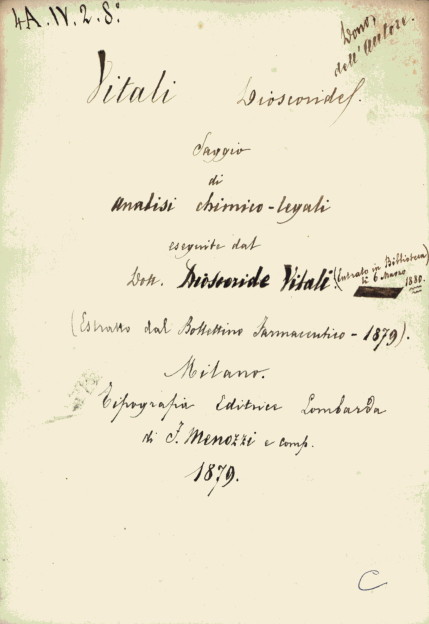 4A.IV.2.8.°
Dono,
dell'Autore.
Vitali Dioscorides.
Saggio
di
analisi chimico-legali
eseguite dal
Dott. Dioscoride Vitali (Entrato in Biblioteca
li 6 Marzo 1880.
(Estratto dal Bollettino Farmaceutico - 1879).
Milano.
Tipografia Editrice Lombarda
di F. Menozzi e comp.
1879.
C